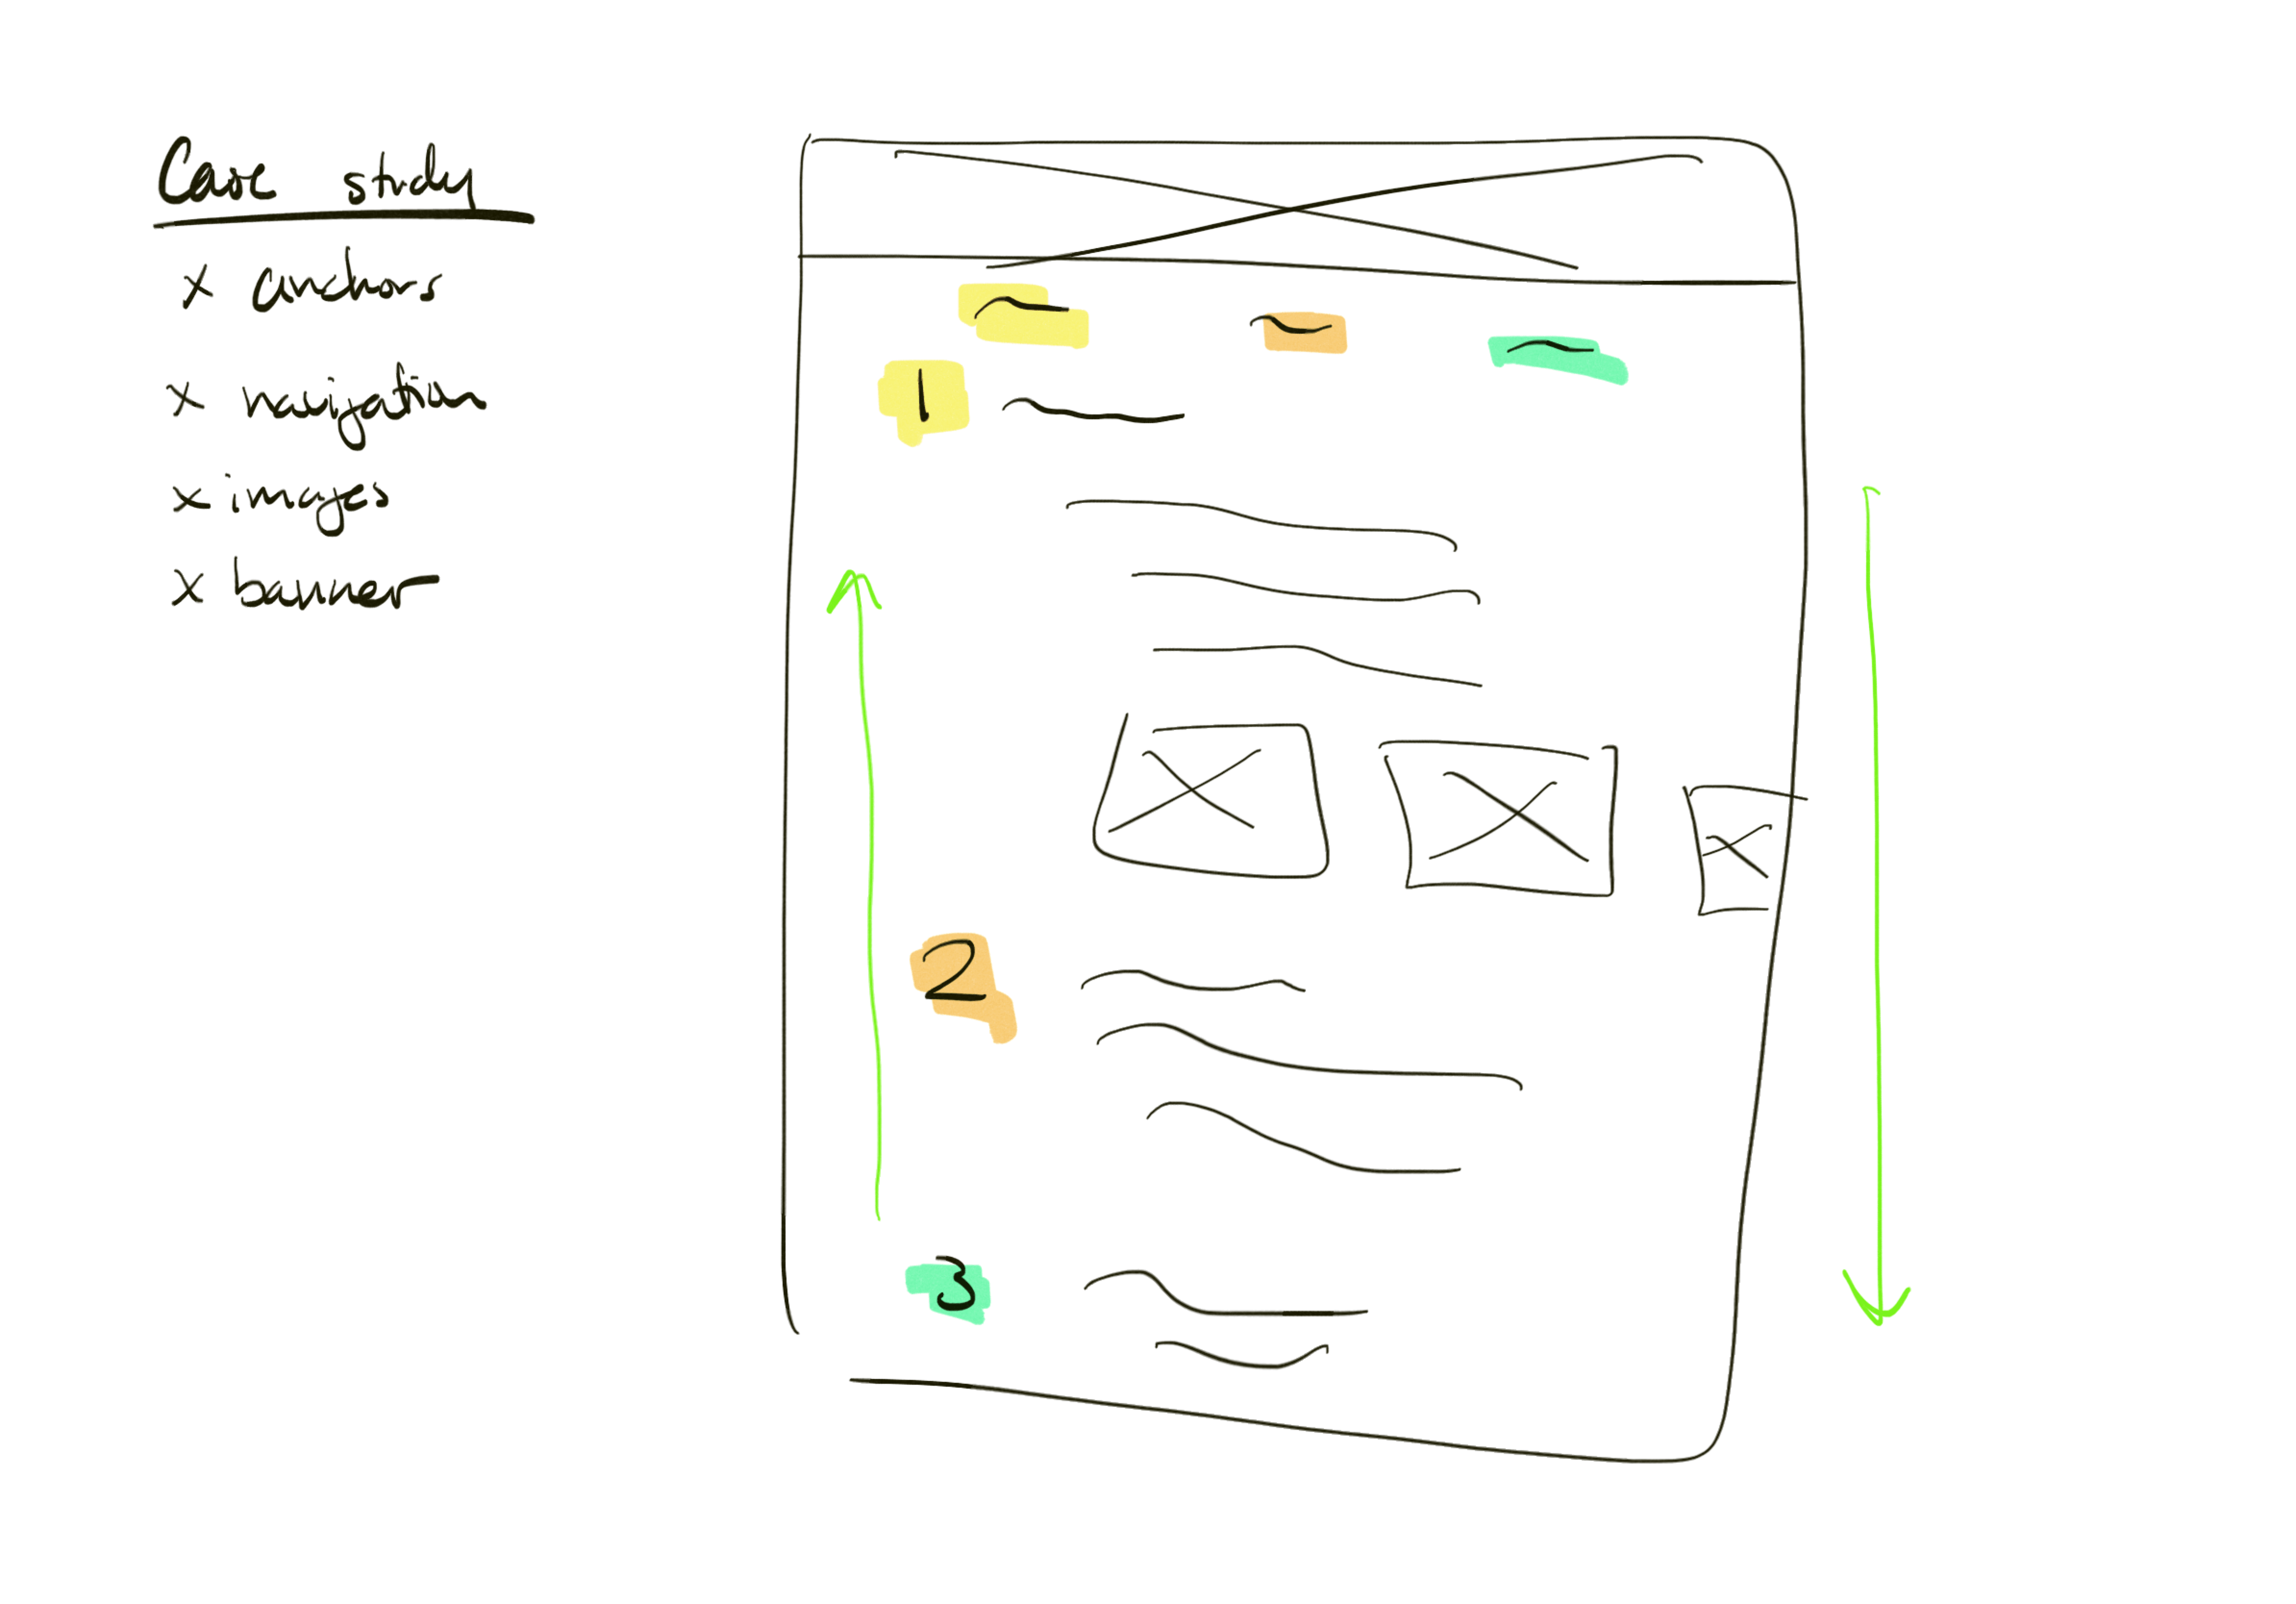 Case study
x anchors
x navigation
x images
x banner
1
2
3